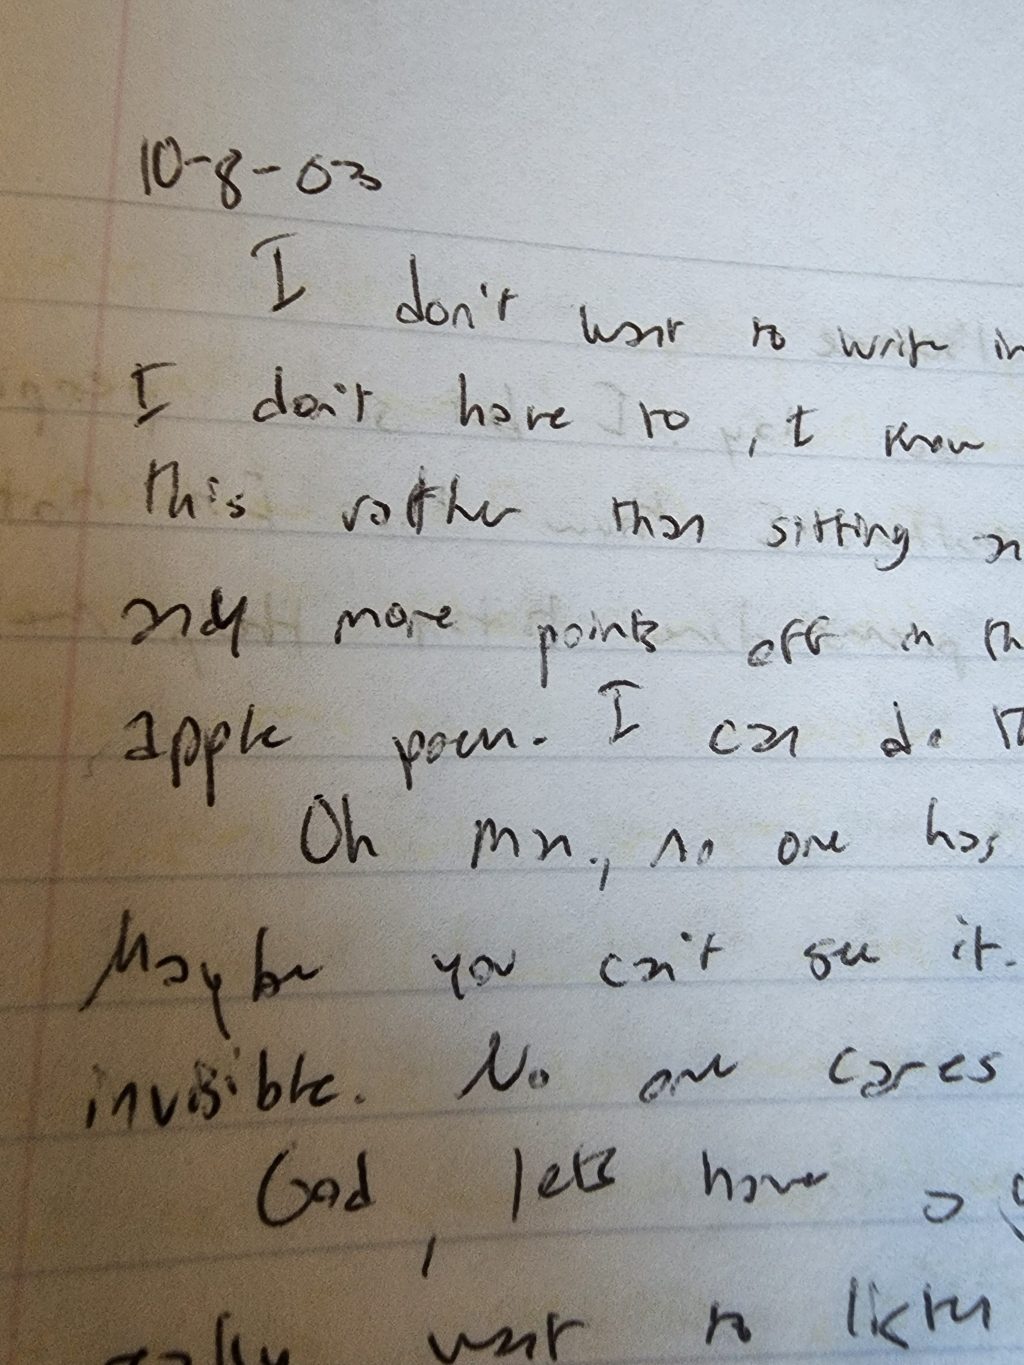 10-8-03
I don't want to write in
I don't have to, I know
this rather than sitting
more points off in th
apple poem. I can do
Oh man, no one has
Maybe you can't see it.
invisible. No one cares
God, lets have a
want to listen